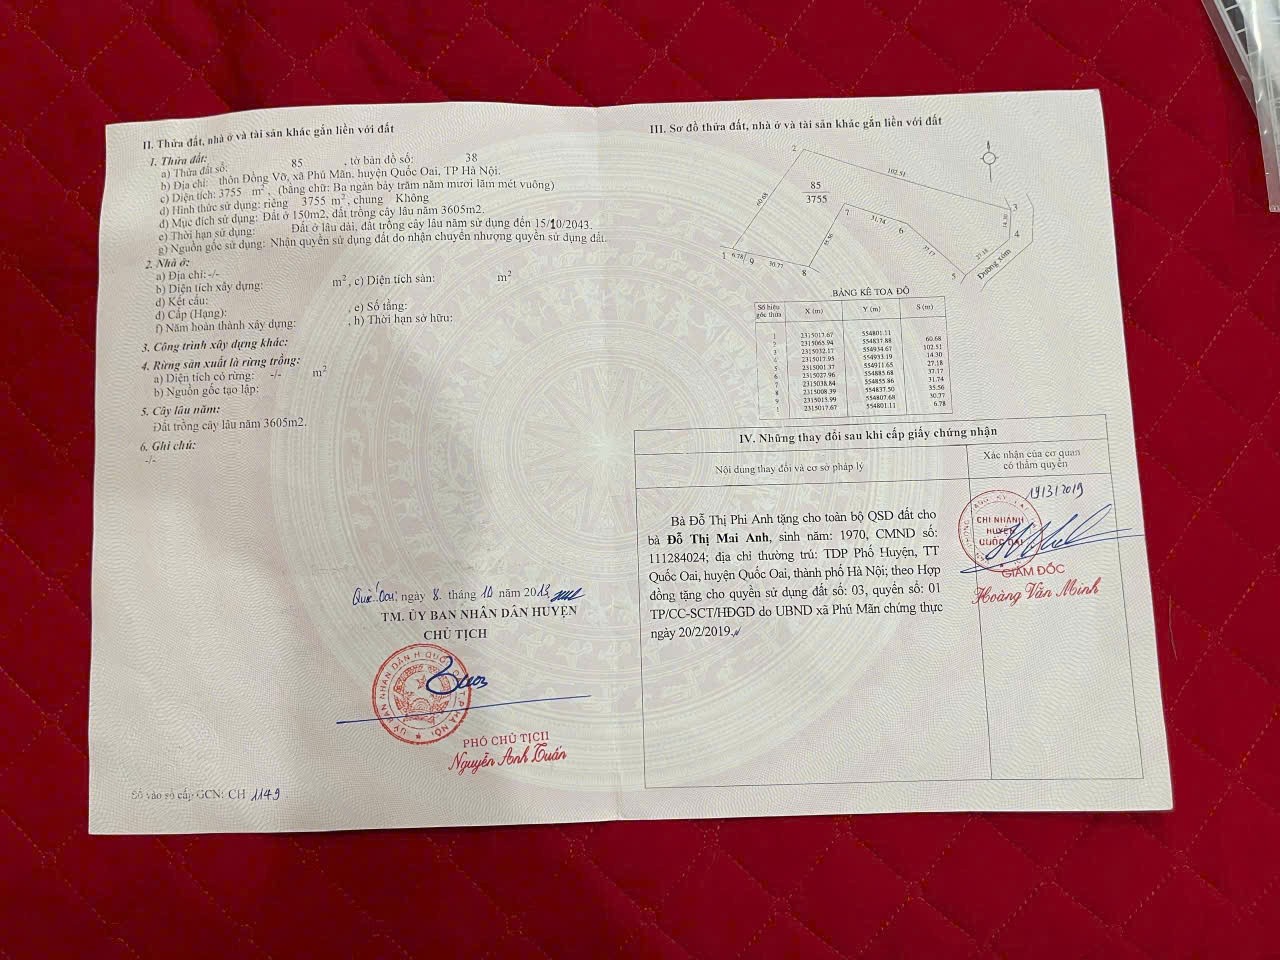 II. Thửa đất, nhà ở và tài sản khác gắn liền với đất
1. Thửa đất:
a) Thửa đất số: 85 , tờ bản đồ số: 38
b) Địa chỉ: thôn Đồng Vỡ, xã Phú Mãn, huyện Quốc Oai, TP Hà Nội.
c) Diện tích: 3755 m², (bằng chữ: Ba ngàn bảy trăm năm mươi lăm mét vuông)
d) Hình thức sử dụng: riêng 3755 m², chung Không
đ) Mục đích sử dụng: Đất ở 150m2, đất trồng cây lâu năm 3605m2.
e) Thời hạn sử dụng: Đất ở lâu dài, đất trồng cây lâu năm sử dụng đến 15/10/2043.
g) Nguồn gốc sử dụng: Nhận quyền sử dụng đất do nhận chuyển nhượng quyền sử dụng đất.
2. Nhà ở:
a) Địa chỉ: -/-
b) Diện tích xây dựng: m², c) Diện tích sàn: m²
d) Kết cấu: , e) Số tầng:
đ) Cấp (Hạng):
f) Năm hoàn thành xây dựng: , h) Thời hạn sở hữu:
3. Công trình xây dựng khác:
4. Rừng sản xuất là rừng trồng:
a) Diện tích có rừng: -/- m²
b) Nguồn gốc tạo lập:
5. Cây lâu năm:
Đất trồng cây lâu năm 3605m2.
6. Ghi chú:
-/-
Quốc Oai, ngày 8 tháng 10 năm 2013
TM. ỦY BAN NHÂN DÂN HUYỆN
CHỦ TỊCH
PHÓ CHỦ TỊCH
Nguyễn Anh Tuấn
Số vào sổ cấp GCN: CH 1149
III. Sơ đồ thửa đất, nhà ở và tài sản khác gắn liền với đất
2
102.51
60.68
85
3755
3
14.30
4
7
31.74
6
37.17
35.56
27.18
5
Đường xóm
1
6.78
9
30.77
8
BẢNG KÊ TOẠ ĐỘ
Số hiệu góc thửa X (m) Y (m) S (m)
1 2315017.67 554801.11
60.68
2 2315065.94 554837.88
102.51
3 2315032.17 554934.67
14.30
4 2315017.95 554933.19
27.18
5 2315001.37 554911.65
37.17
6 2315027.96 554885.68
31.74
7 2315038.84 554855.86
35.56
8 2315008.39 554837.50
30.77
9 2315013.99 554807.68
6.78
1 2315017.67 554801.11
IV. Những thay đổi sau khi cấp giấy chứng nhận
Nội dung thay đổi và cơ sở pháp lý
Xác nhận của cơ quan
có thẩm quyền
Bà Đỗ Thị Phi Anh tặng cho toàn bộ QSD đất cho
bà Đỗ Thị Mai Anh, sinh năm: 1970, CMND số:
111284024; địa chỉ thường trú: TDP Phố Huyện, TT
Quốc Oai, huyện Quốc Oai, thành phố Hà Nội; theo Hợp
đồng tặng cho quyền sử dụng đất số: 03, quyển số: 01
TP/CC-SCT/HĐGD do UBND xã Phú Mãn chứng thực
ngày 20/2/2019.
19/3/2019
CHI NHÁNH
HUYỆN
QUỐC OAI
GIÁM ĐỐC
Hoàng Văn Minh